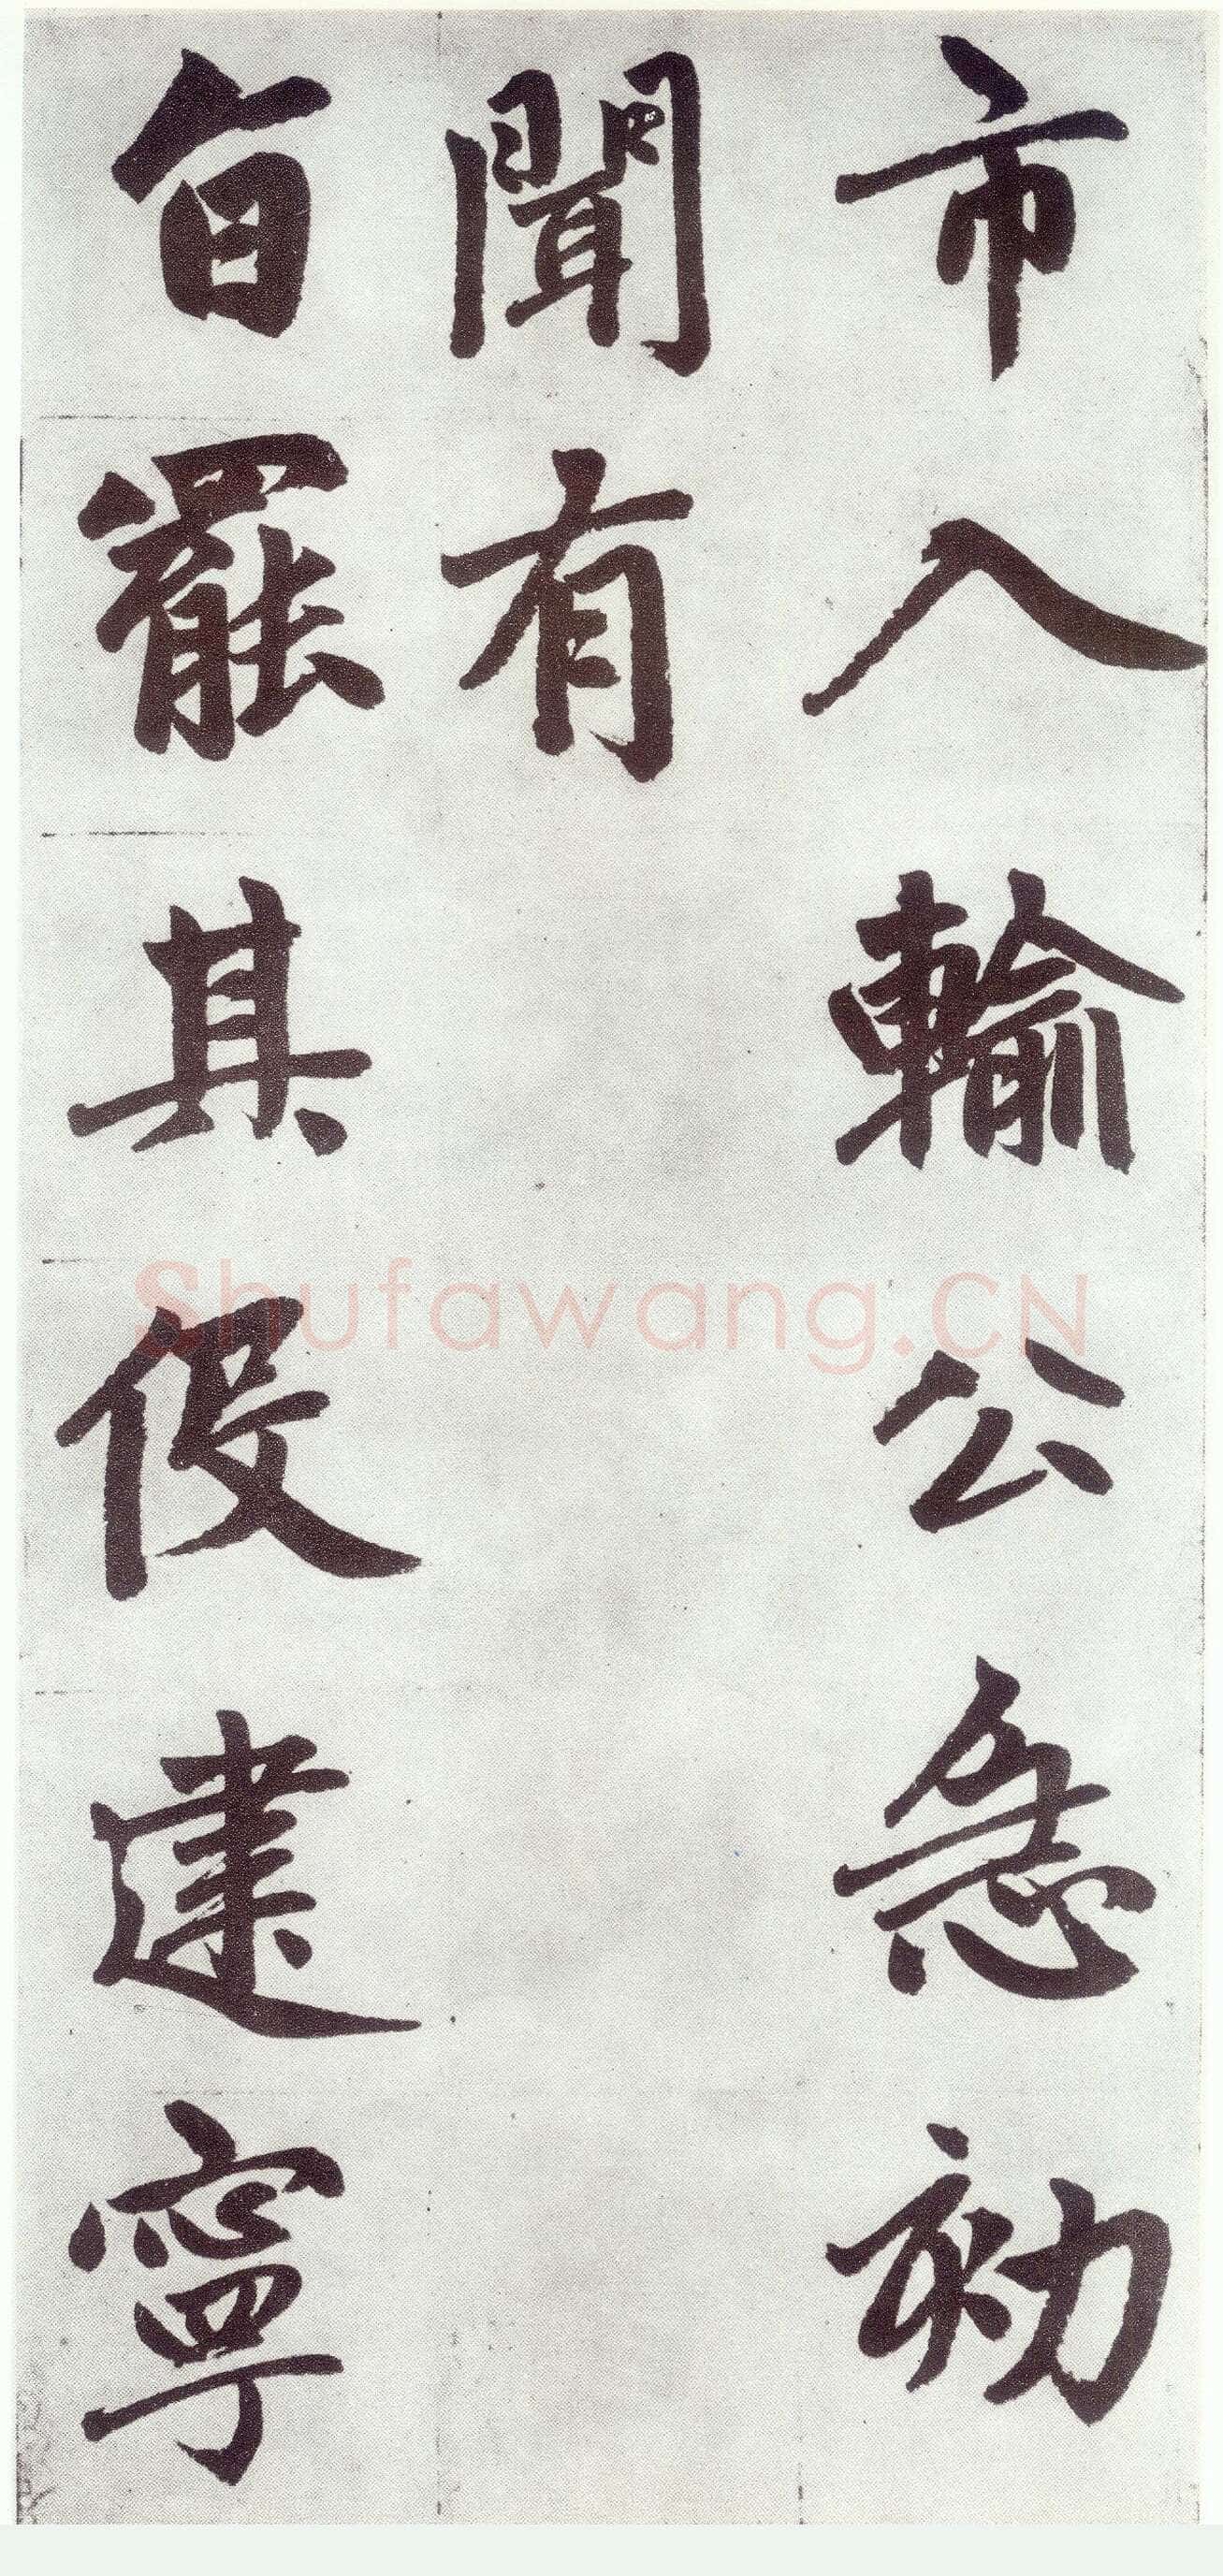 市入輸公急効
聞有
旨罷其役建寧
Shufawang.CN